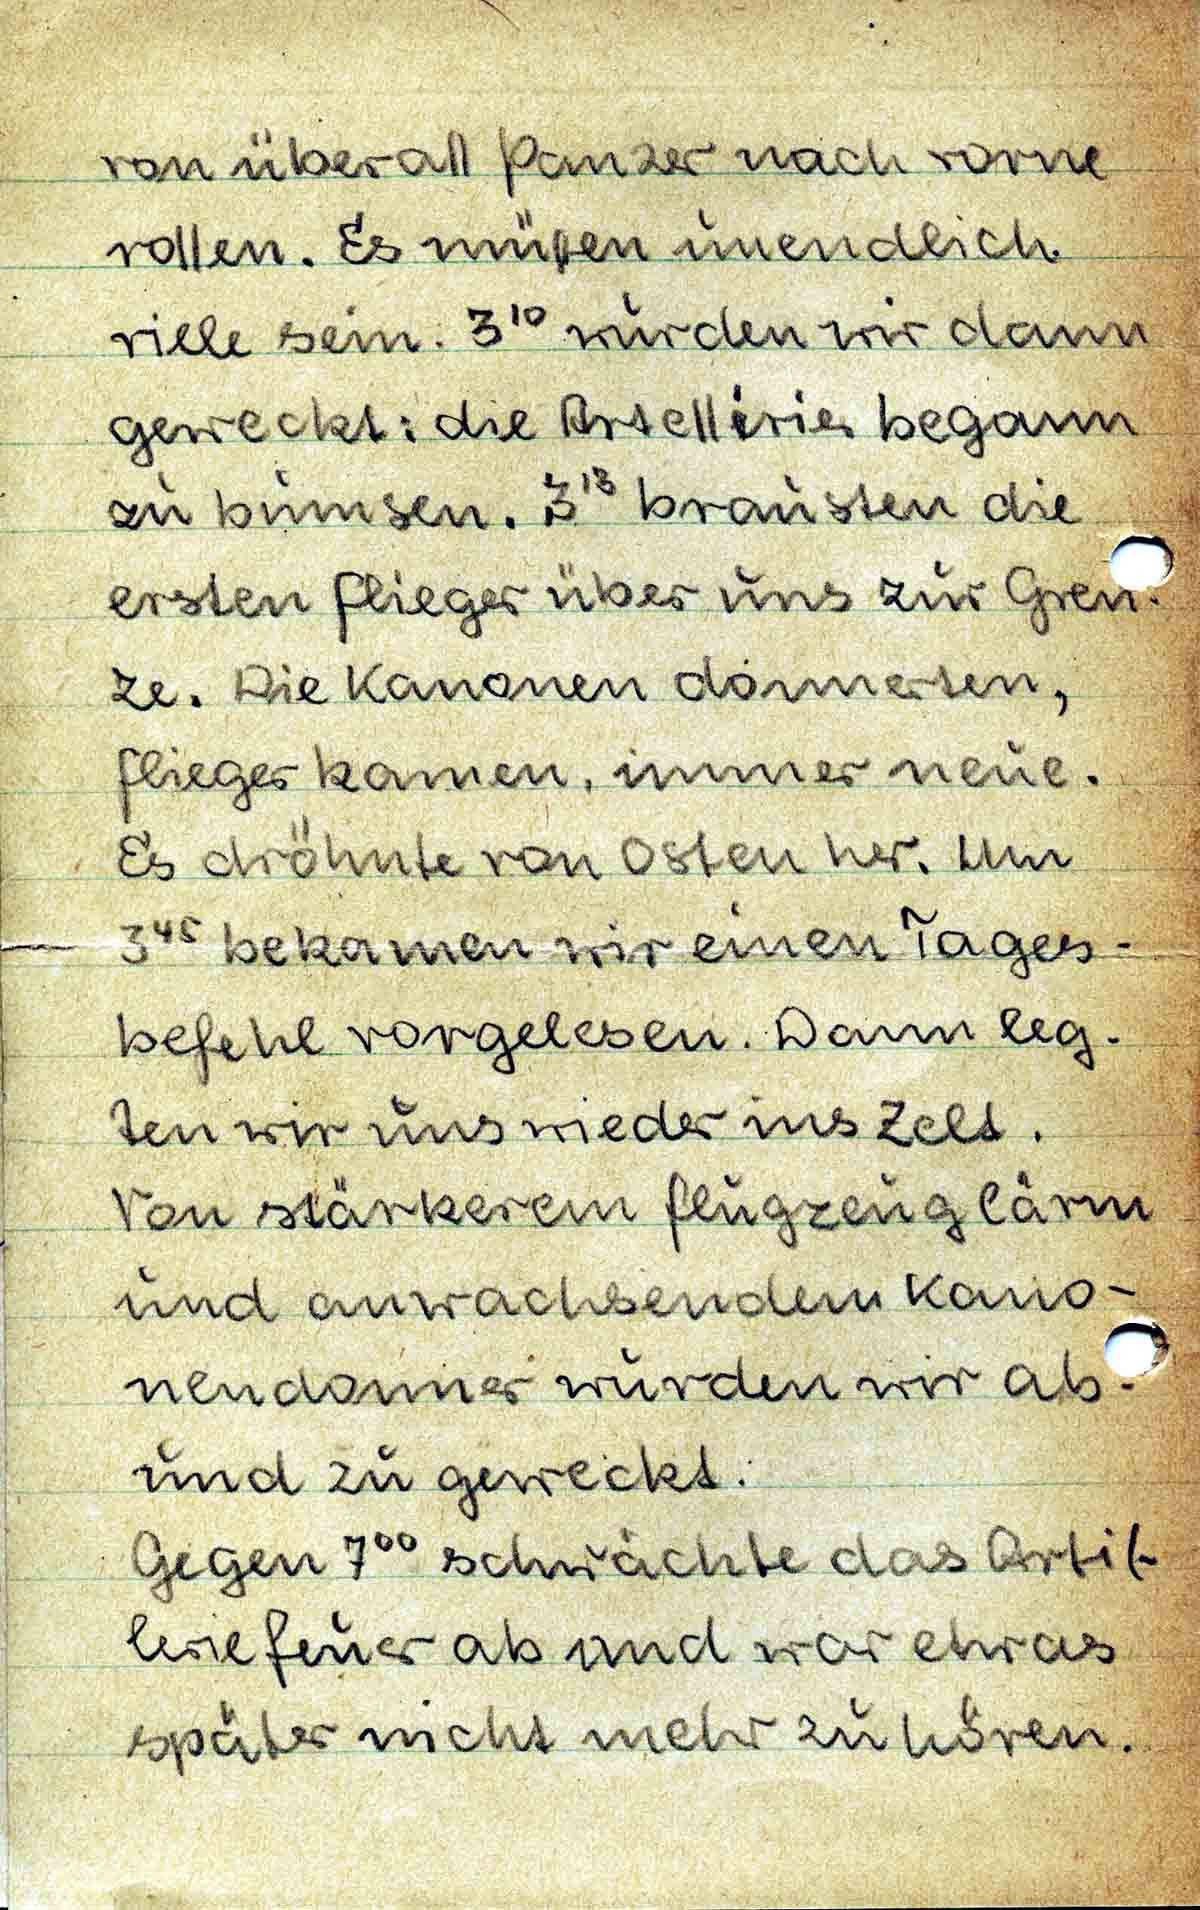 von überall Panzer nach vorne
rollen. Es müßen unendlich
viele sein. 3¹⁰ wurden wir dann
geweckt: die Artellirie begann
zu bumsen. 3¹³ brausten die
ersten Flieger über uns zur Gren-
ze. Die Kanonen donnerten,
Flieger kamen, immer neue.
Es dröhnte von Osten her. Um
3⁴⁵ bekamen wir einen Tages-
befehl vorgelesen. Dann leg-
ten wir uns wieder ins Zelt.
Von stärkerem Flugzeuglärm
und anwachsendem Kano-
nendonner wurden wir ab-
und zu geweckt.
Gegen 7⁰⁰ schwächte das Artil-
leriefeuer ab und war etwas
später nicht mehr zu hören.